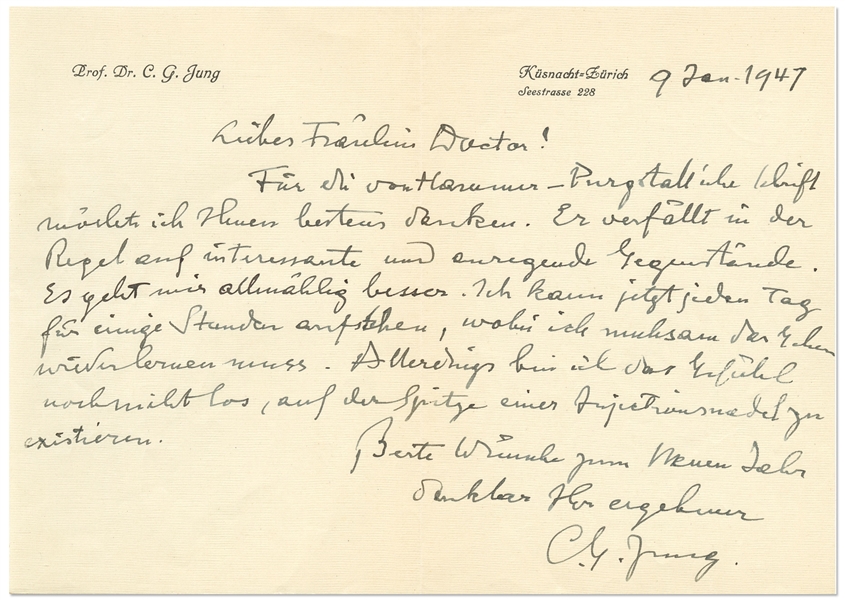 Prof. Dr. C. G. Jung
Küsnacht=Zürich 9 Jan. 1947
Seestrasse 228
Liebes Fräulein Doctor!
Für die von Hammer-Purgstall'sche Schrift
möchte ich Ihnen bestens danken. Er verfällt in der
Regel auf interessante und anregende Gegenstände.
Es geht mir allmählig besser. Ich kann jetzt jeden Tag
für einige Stunden aufstehen, wobei ich mühsam das Gehen
wiederlernen muss. Allerdings bin ich das Gefühl
noch nicht los, auf der Spitze einer Injectionsnadel zu
existieren.
Beste Wünsche zum Neuen Jahr
dankbar Ihr ergebener
C. G. Jung.